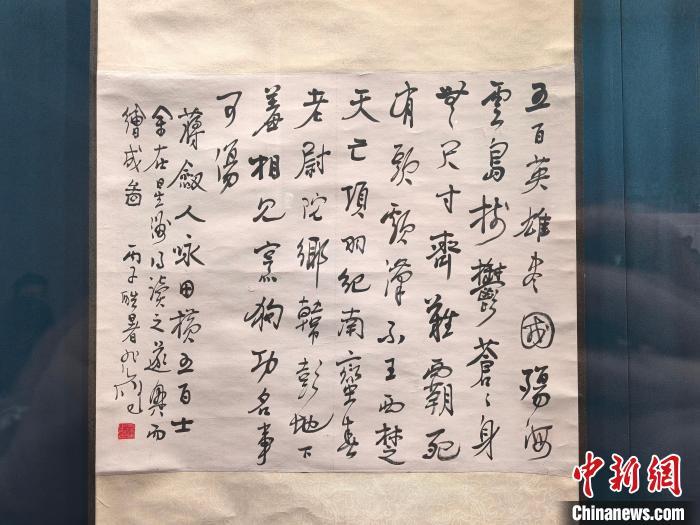 五百英雄盡國殤海
雲島樹鬱蒼々身
無尺寸齊難霸死
有頭顱漢不王西楚
天亡項羽紀南蠻
老尉陀鄉韓彭地下
羞相見烹狗功名事
可傷
薄劔人咏田橫五百士
余在星洲得讀之遂興而
繪成啚 丙子酷暑
中新网
Chinanews.com